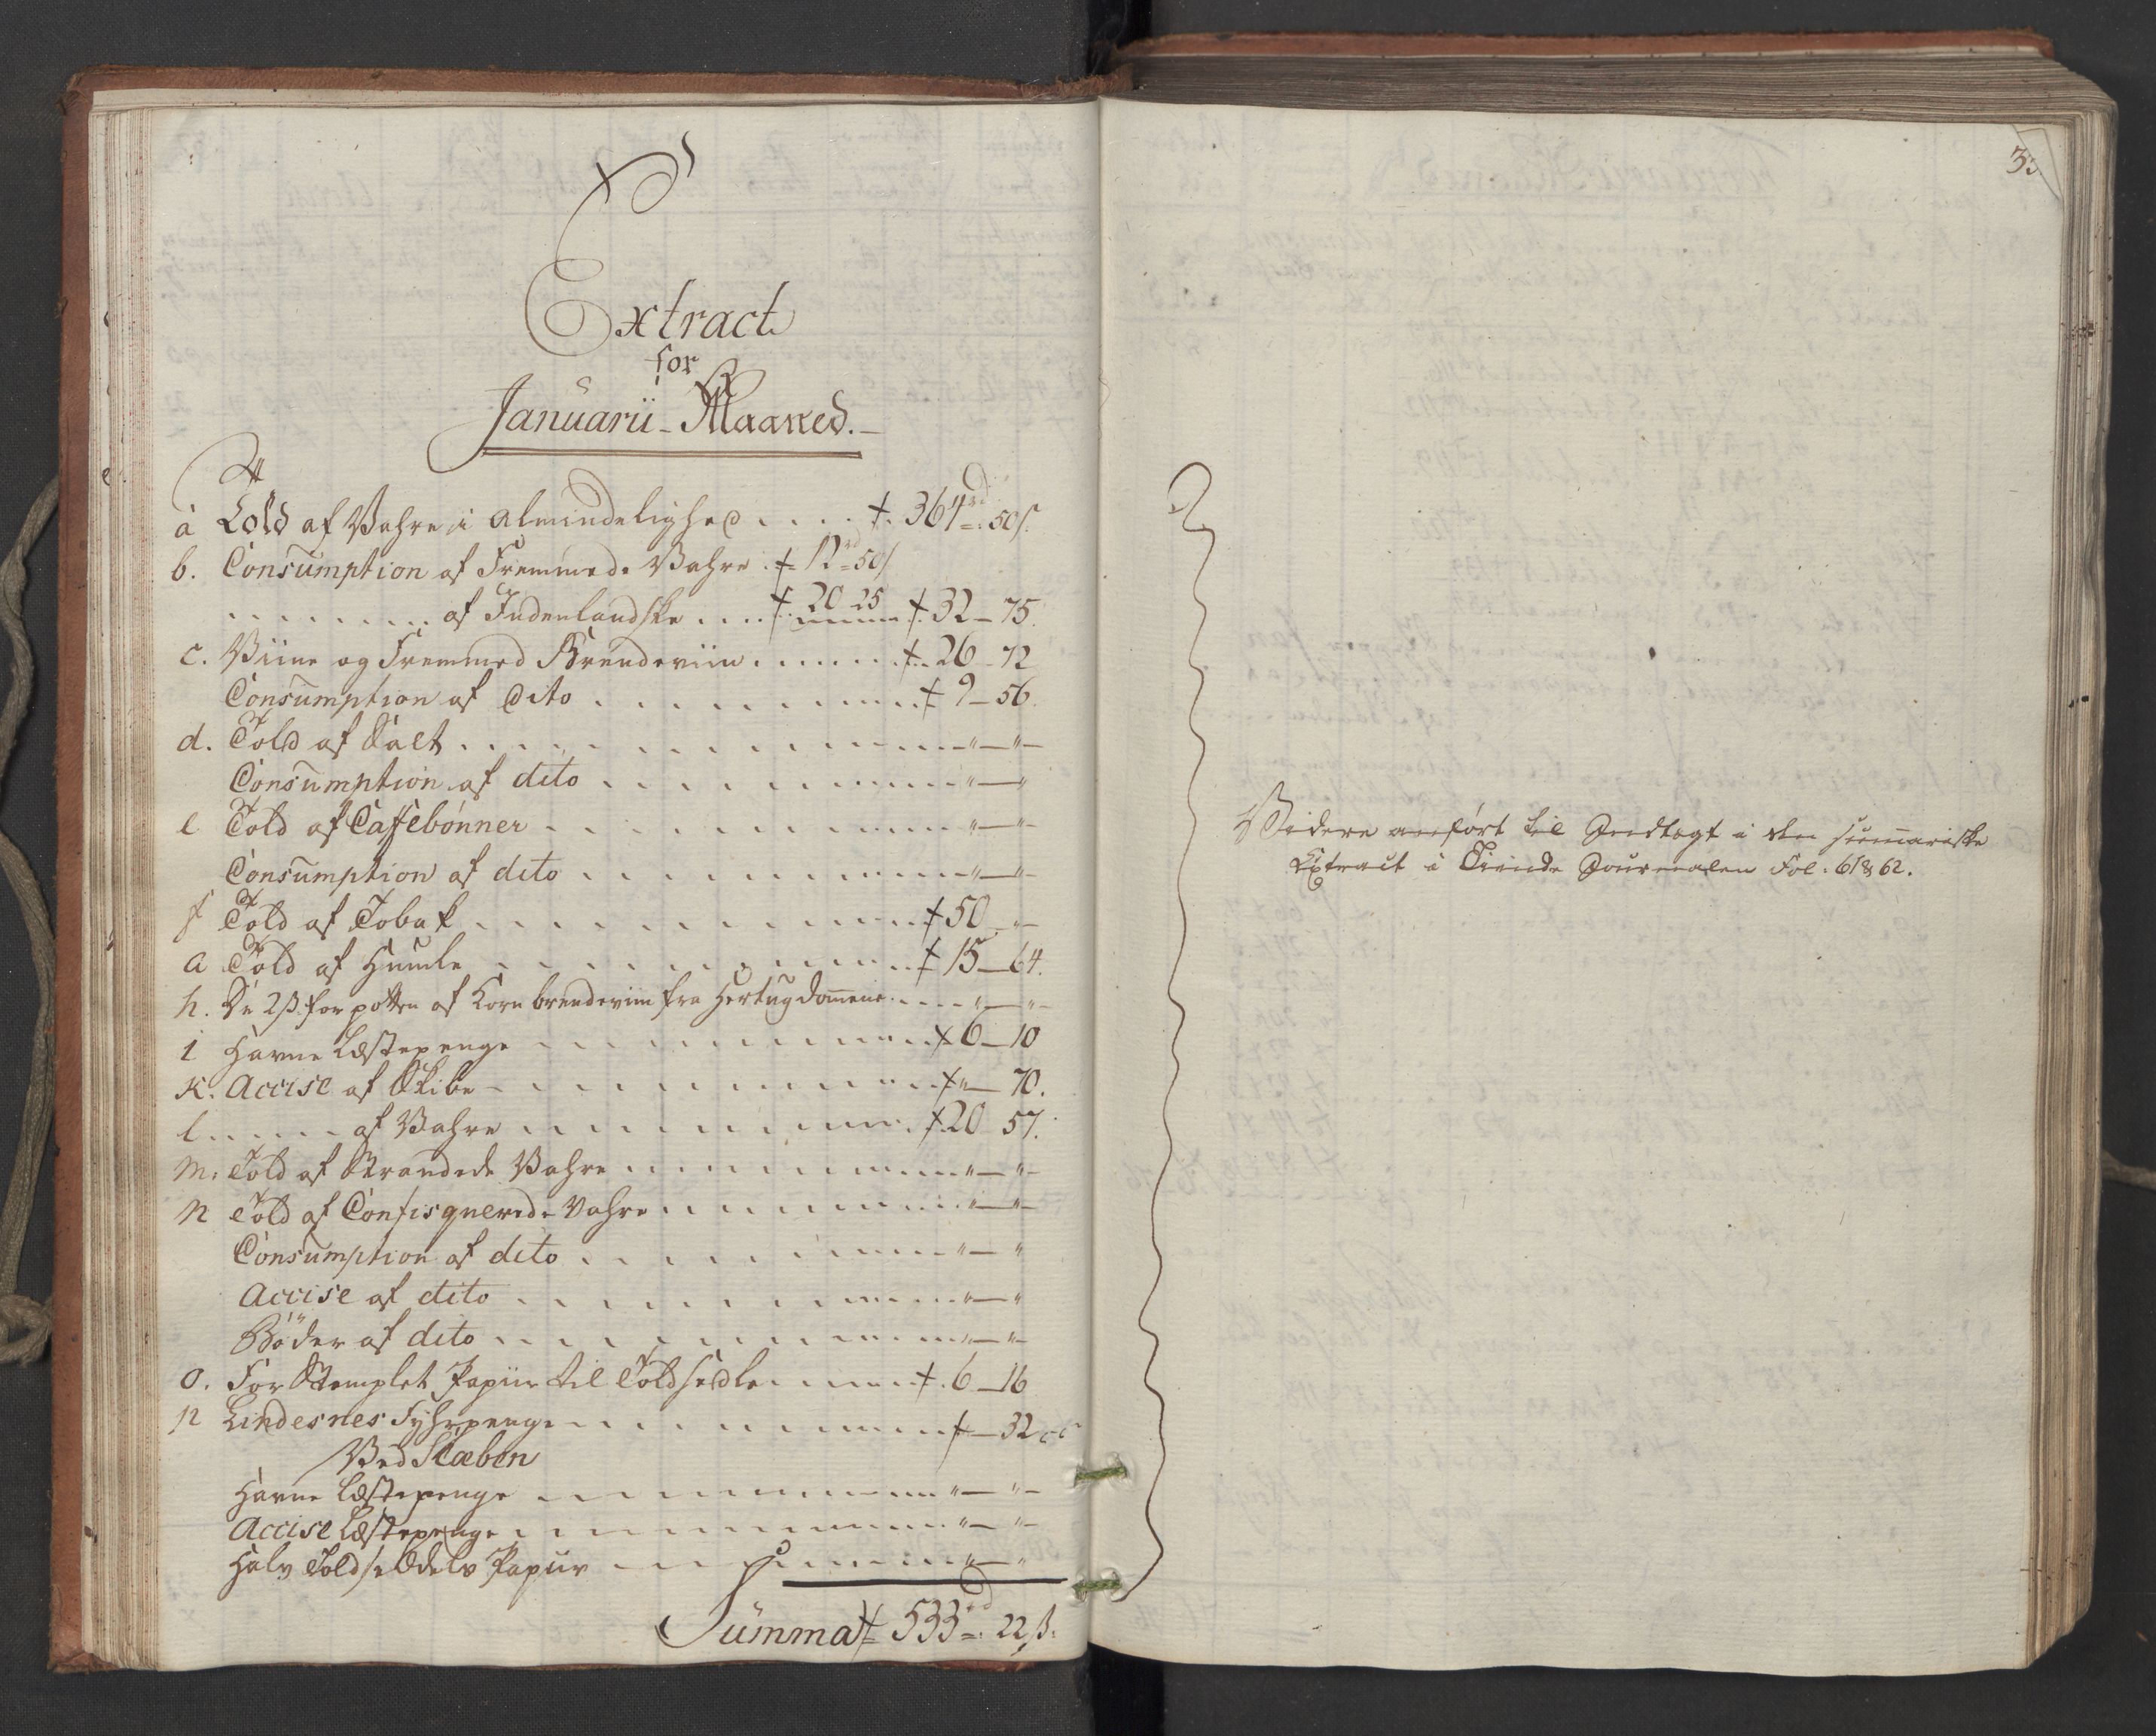 Extract
for
Januarii - Maaned.
a Told af Vahre i Almindelighed .... 364rd = 50s.
b. Consumption af Fremmede Vahre . 12rd = 50s
......... af Indenlandske .... 20 - 25 32 - 75.
c. Viine og Fremmed Brendeviin ...... 26 - 72
Consumption af dito ........ 9 - 56.
d. Told af Salt ........ " — " —
Consumption af dito ........ " — "
e Told af Caffebønner ........ " — " —
Consumption af dito ........ " — " —
f Told af Tobak ........ 50 - " —
Told af Humle ........ 15 - 64.
h. De 2 ß. for potten af Korn brendeviin fra Hertugdomene .... " — " —
i Havne Læstepenge ........ 6 - 10
K. Accise af Skibe ........ " — 70.
l ..... af Vahre ........ 20 57.
m. Told af Strandede Vahre ........ " — " —
n Told af Confisquerede Vahre ........ " — " —
Consumption af dito ........ " — "
Accise af dito ........ " — "
Bøder af dito ........ " — " —
o. For Stemplet Papiir til Toldsedle ........ 6 - 16
p Lindesnes Fyhrpenge ........ — 32
Ved Slæben
Havne Læstepenge ........ " — " —
Accise Læstepenge ........ " — " —
Halv Toldseddels Papiir ........ " — "
Summa 533rd =. 22 ß.
Videre anført til Indtægt i den sumariske
Extract i Tiende Journalen Fol: 61 & 62.